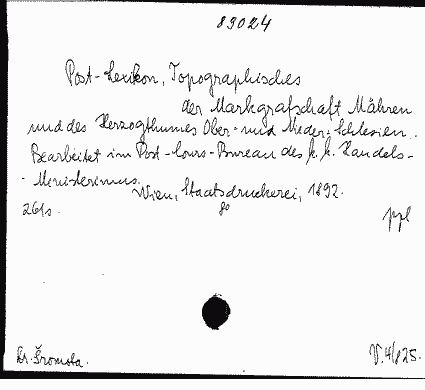 83024
Post-Lexikon, Topographisches
der Markgrafschaft Mähren
und des Herzogthumes Ober- und Nieder-Schlesien.
Bearbeitet im Post-Cours-Bureau des k. k. Handels-
-Ministeriums.
Wien, Staatsdruckerei, 1892.
261s. 8o ppl
Dr. Šromota. V.4/125.